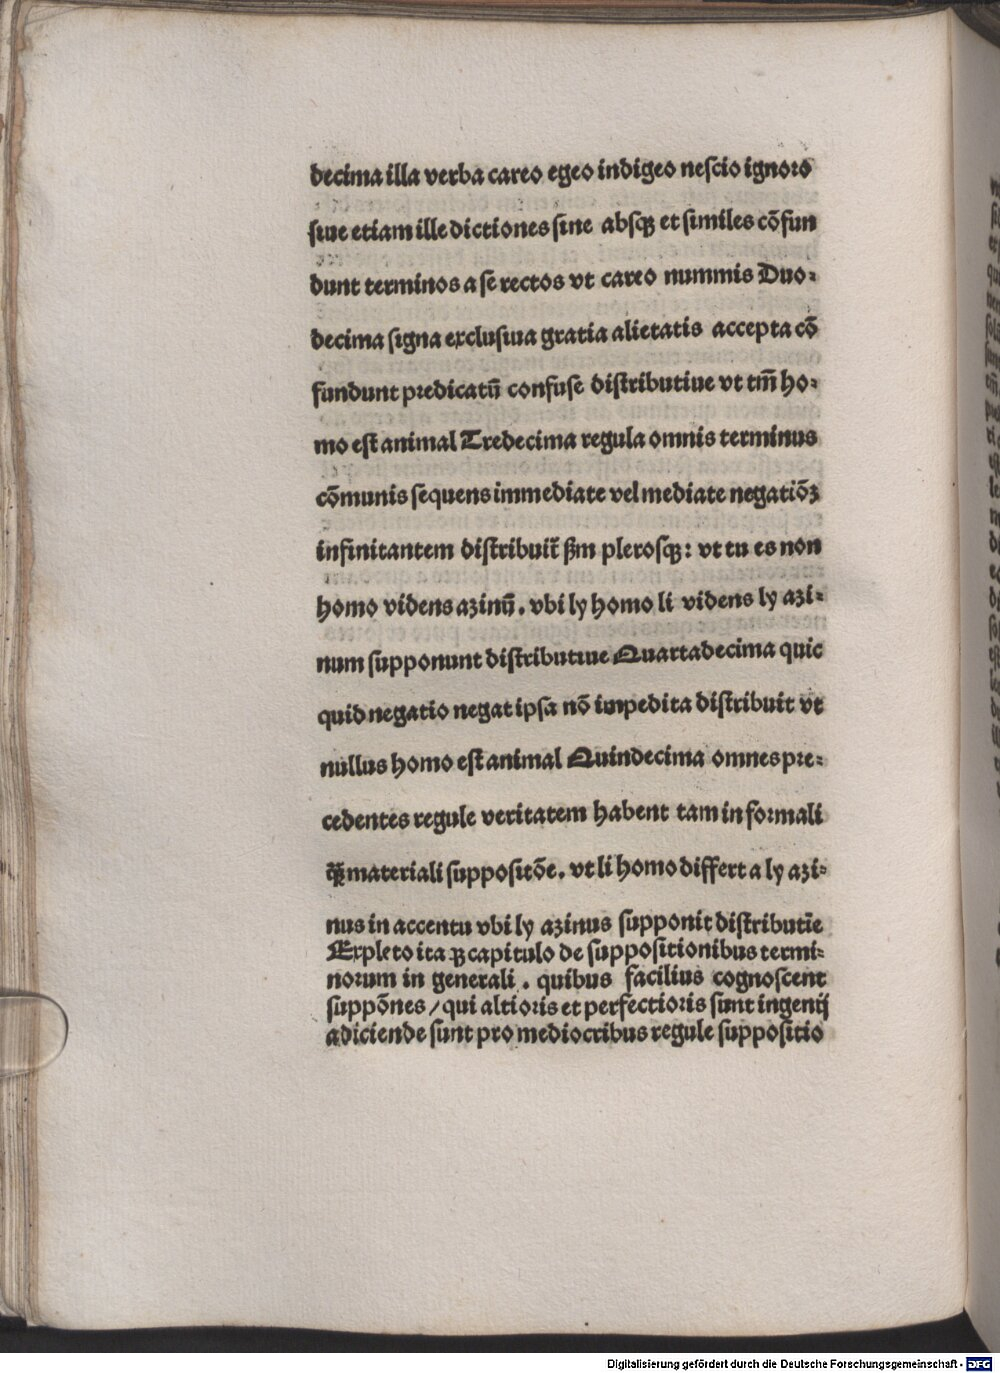 decima illa verba careo egeo indigeo neſcio ignoro
ſiue etiam ille dictiones ſine abſqꝫ et ſimiles cōfun
dunt terminos a ſe rectos vt careo nummis Duo⸗
decima ſigna excluſiua gratia alietatis accepta cō
fundunt predicatū confuſe diſtributiue vt tm̄ ho⸗
mo eſt animal Tredecima regula omnis terminus
cōmunis ſequens immediate vel mediate negatiōꝫ
infinitantem diſtribuit̄ ßm pleroſqꝫ: vt tu es non
homo videns azinū. vbi ly homo li videns ly azi⸗
num ſupponunt diſtributiue Quartadecima quic
quid negatio negat ipſa nō impedita diſtribuit vt
nullus homo eſt animal Quindecima omnes pre⸗
cedentes regule veritatem habent tam in formali
q̄ꝫ materiali ſuppoſitōe. vt li homo differt a ly azi⸗
nus in accentu vbi ly azinus ſupponit diſtributīe
Expleto ita qꝫ capitulo de ſuppoſitionibus termi⸗
norum in generali. quibus facilius cognoſcent
ſuppōnes/ qui altioris et perfectioris ſunt ingenij
adiciende ſunt pro mediocribus regule ſuppoſitio
Digitalisierung gefördert durch die Deutsche Forschungsgemeinschaft - DFG